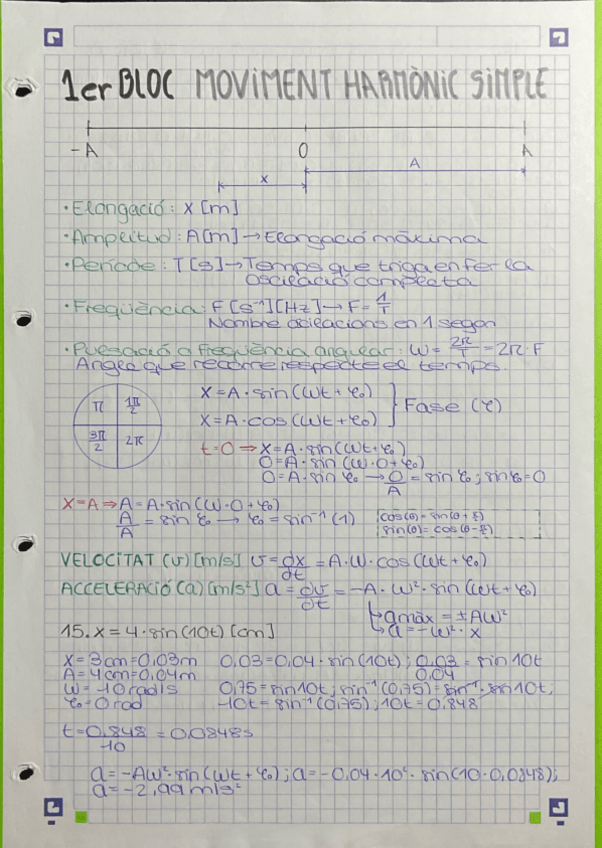 1er BLOC MOVIMENT HARMÒNIC SIMPLE
-A O A
x A
· Elongació: x [m]
· Amplitud: A[m] → Elongació màxima
· Període: T[s] → Temps que triga en fer la
oscilació completa
· Freqüència: F [s⁻¹][Hz] → F = 1/T
Nombre oscilacions en 1 segon
· Pulsació o freqüència angular: ω = 2π/T = 2π·F
Angle que recorre respecte el temps
π 1π/2
3π/2 2π
x = A · sin (ωt + φ₀)
x = A · cos (ωt + φ₀)
Fase (φ)
t=0 ⇒ x = A · sin (ωt + φ₀)
0 = A · sin (ω·0 + φ₀)
0 = A · sin φ₀ → 0/A = sin φ₀ ; sin φ₀ = 0
x=A ⇒ A = A · sin (ω·0 + φ₀)
A/A = sin φ₀ → φ₀ = sin⁻¹ (1)
cos(θ) = sin(θ + π/2)
sin(θ) = cos(θ - π/2)
VELOCITAT (v) [m/s] v = dx/dt = A·ω·cos (ωt + φ₀)
ACCELERACIÓ (a) [m/s²] a = dv/dt = -A · ω² · sin (ωt + φ₀)
↳ amàx = ±Aω²
↳ a = -ω² · x
15. x = 4 · sin (10t) [cm]
x = 3cm = 0,03m 0,03 = 0,04 · sin (10t) ; 0,03/0,04 = sin 10t
A = 4cm = 0,04m
ω = 10 rad/s 0,75 = sin 10t ; sin⁻¹ (0,75) = sin⁻¹ · sin 10t ;
φ₀ = 0 rad 10t = sin⁻¹ (0,75) ; 10t = 0,848
t = 0,848/10 = 0,0848s
a = -Aω² · sin (ωt + φ₀) ; a = -0,04 · 10² · sin (10 · 0,0848) ;
a = -2,99 m/s²